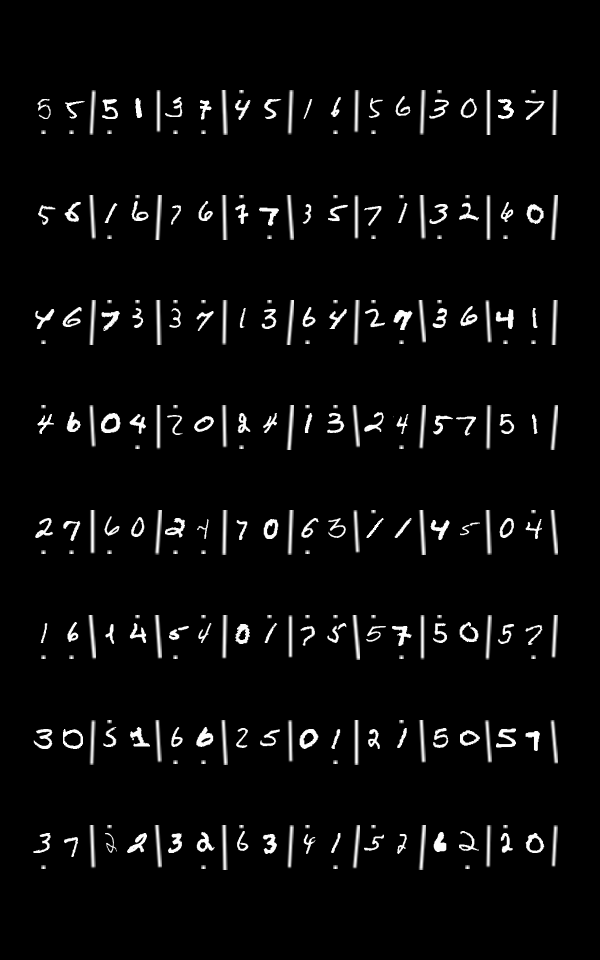 5̣ 5̣ | 5̣ 1 | 3̣ 7̣ | 4̇ 5 | 1 6̣ | 5̣ 6 | 3̇ 0 | 3 7̇ |
5 6 | 1̣ 6̇ | 7 6 | 7̇ 7̣ | 3 5̇ | 7̣ 1̇ | 3̣ 2̇ | 6̣ 0 |
4̣ 6 | 7̇ 3̇ | 3̇ 7̇ | 1 3 | 6̣ 4̇ | 2̇ 7̣ | 3̇ 6 | 4̣ 1̣ |
4̇ 6 | 0 4̣ | 2̇ 0 | 2̣ 4 | 1̇ 3 | 2 4̣ | 5 7 | 5 1 |
2̣ 7̣ | 6̣ 0 | 2̣ 4̣ | 7 0 | 6̣ 3 | 1̇ 1 | 4 5 | 0 4̇ |
1̣ 6̣ | 1 4̇ | 5̣ 4̇ | 0 1̇ | 7̇ 5̇ | 5̇ 7̣ | 5̇ 0 | 5 7̣ |
3 0 | 5̇ 1 | 6̣ 6̣ | 2 5 | 0 1̣ | 2 1̇ | 5 0 | 5 7 |
3̣ 7 | 2̇ 2 | 3 2̣ | 6̇ 3 | 4̇ 1̣ | 5̇ 2 | 6 2̣ | 2̇ 0 |